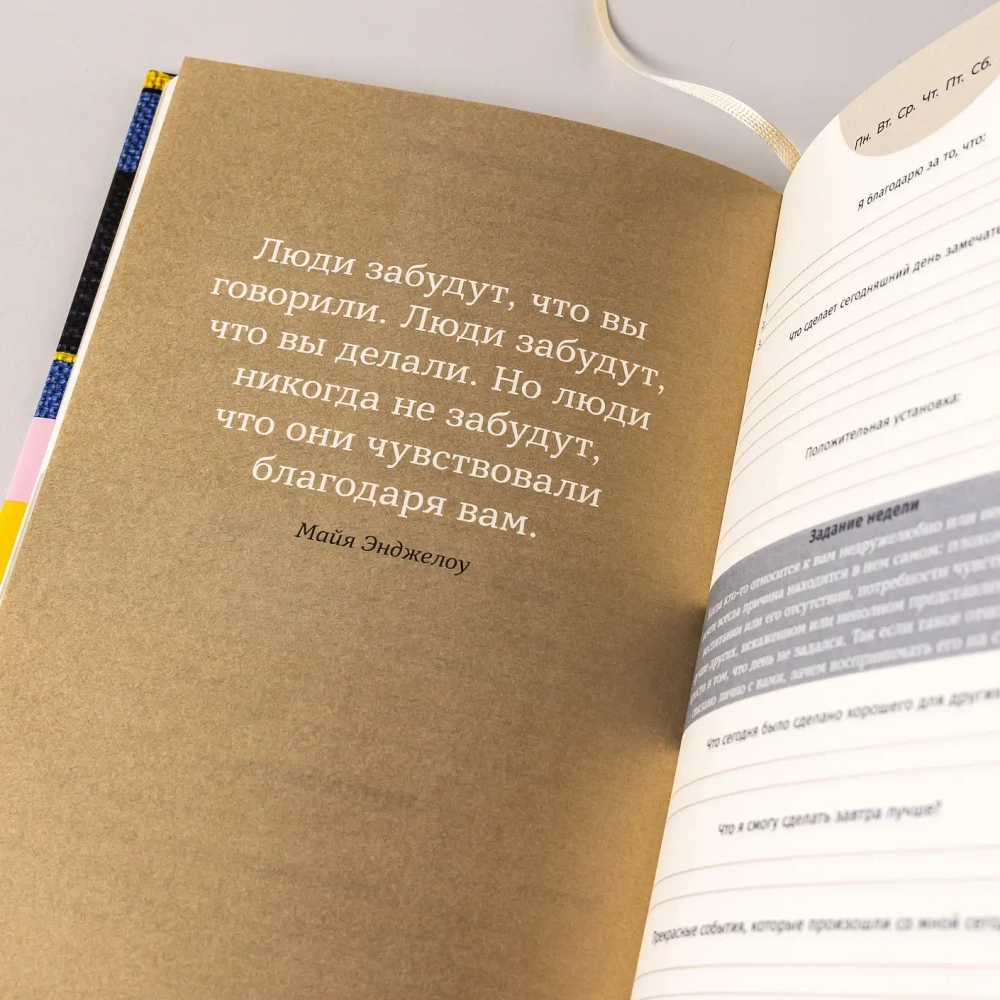 Люди забудут, что вы
говорили. Люди забудут,
что вы делали. Но люди
никогда не забудут,
что они чувствовали
благодаря вам.
Майя Энджелоу
Пн. Вт. Ср. Чт. Пт. Сб.
Я благодарю за то, что:
1.
2.
3.
Что сделает сегодняшний день
Положительная установка:
Задание недели
кто-то относится к вам недружелюбно или
всегда причина находится в нем самом:
воспитании или его отсутствии, потребности
других, искаженном или неполном
в том, что день не задался. Так если такое
связано лично с вами, зачем воспринимать его на
Что сегодня было сделано хорошего для
Что я смогу сделать завтра лучше?
Прекрасные события, которые произошли со мной